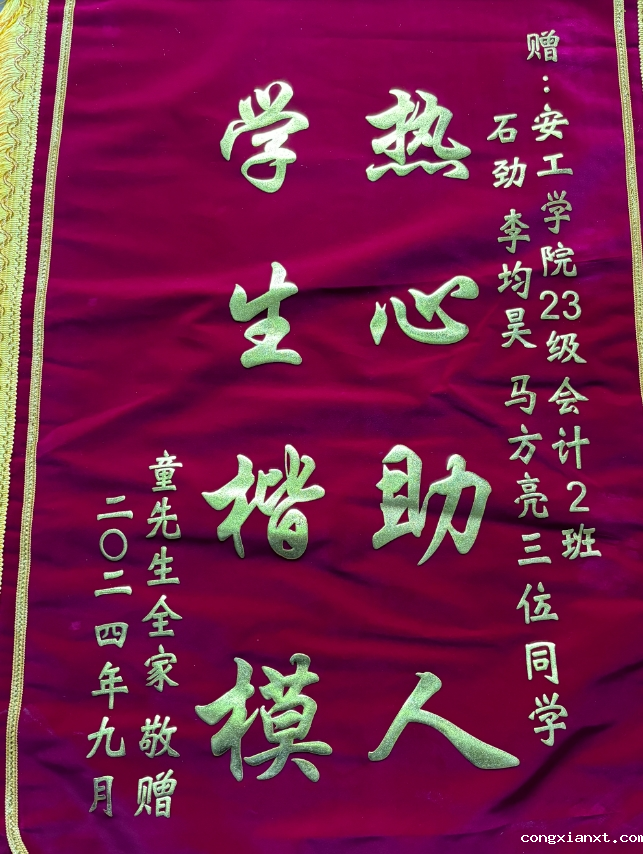 赠：安工学院23级会计2班
石劲 李均昊 马方亮三位同学
热心助人
学生楷模
童先生全家 敬赠
二〇二四年九月
congxianxt.com